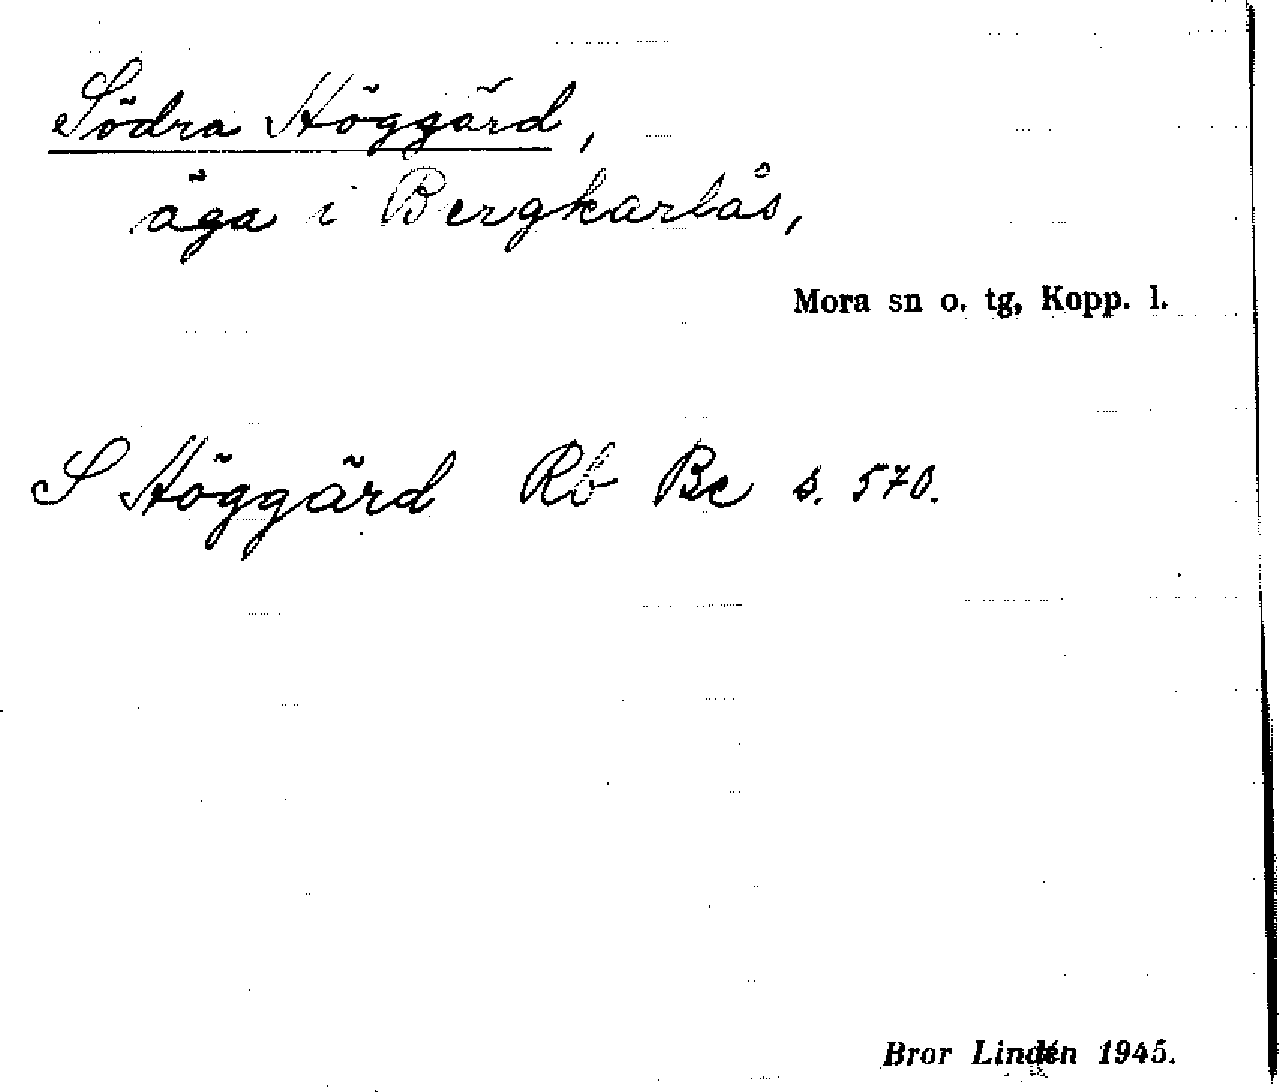 Södra Höggärd,
äga i Bergkarlås,
Mora sn o. tg, Kopp. l.
S Höggärd Rb Be s. 570.
Bror Lindén 1945.